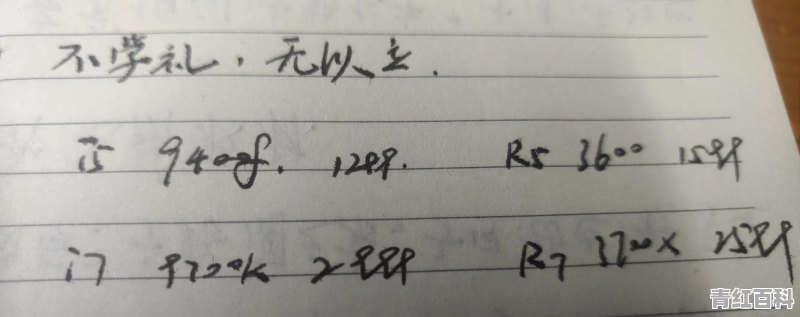 不学礼，无以立.
i5 9400f. 1299. R5 3600 1599
i7 9700K 2999 R7 3700X 2599
青红百科